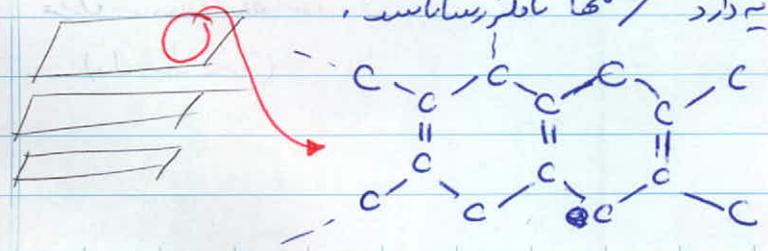 یه دارد / تنها نافلز رساناست.
C C C C
C C C
C C C
C C C C